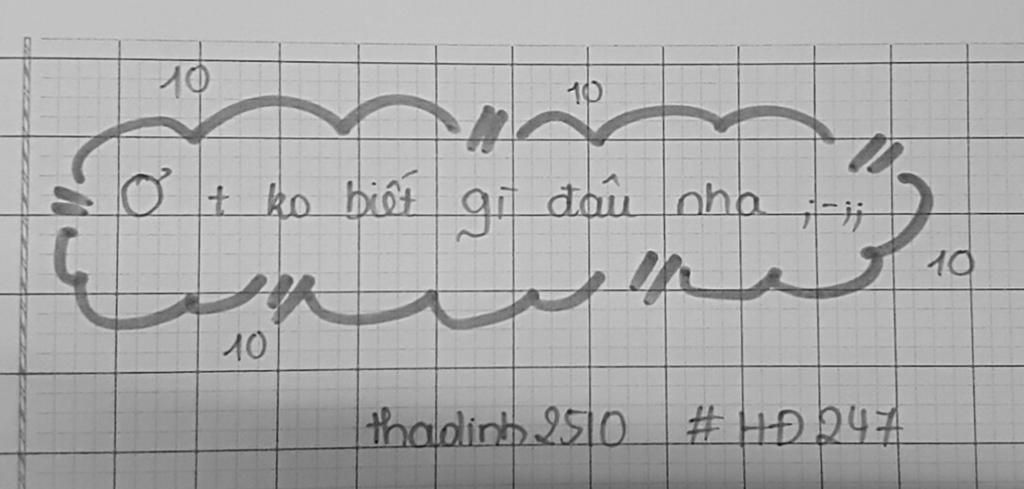 10 10
Ơ t ko biết gì đâu nha ;-;;
10
10
thadinh2510 #HĐ247